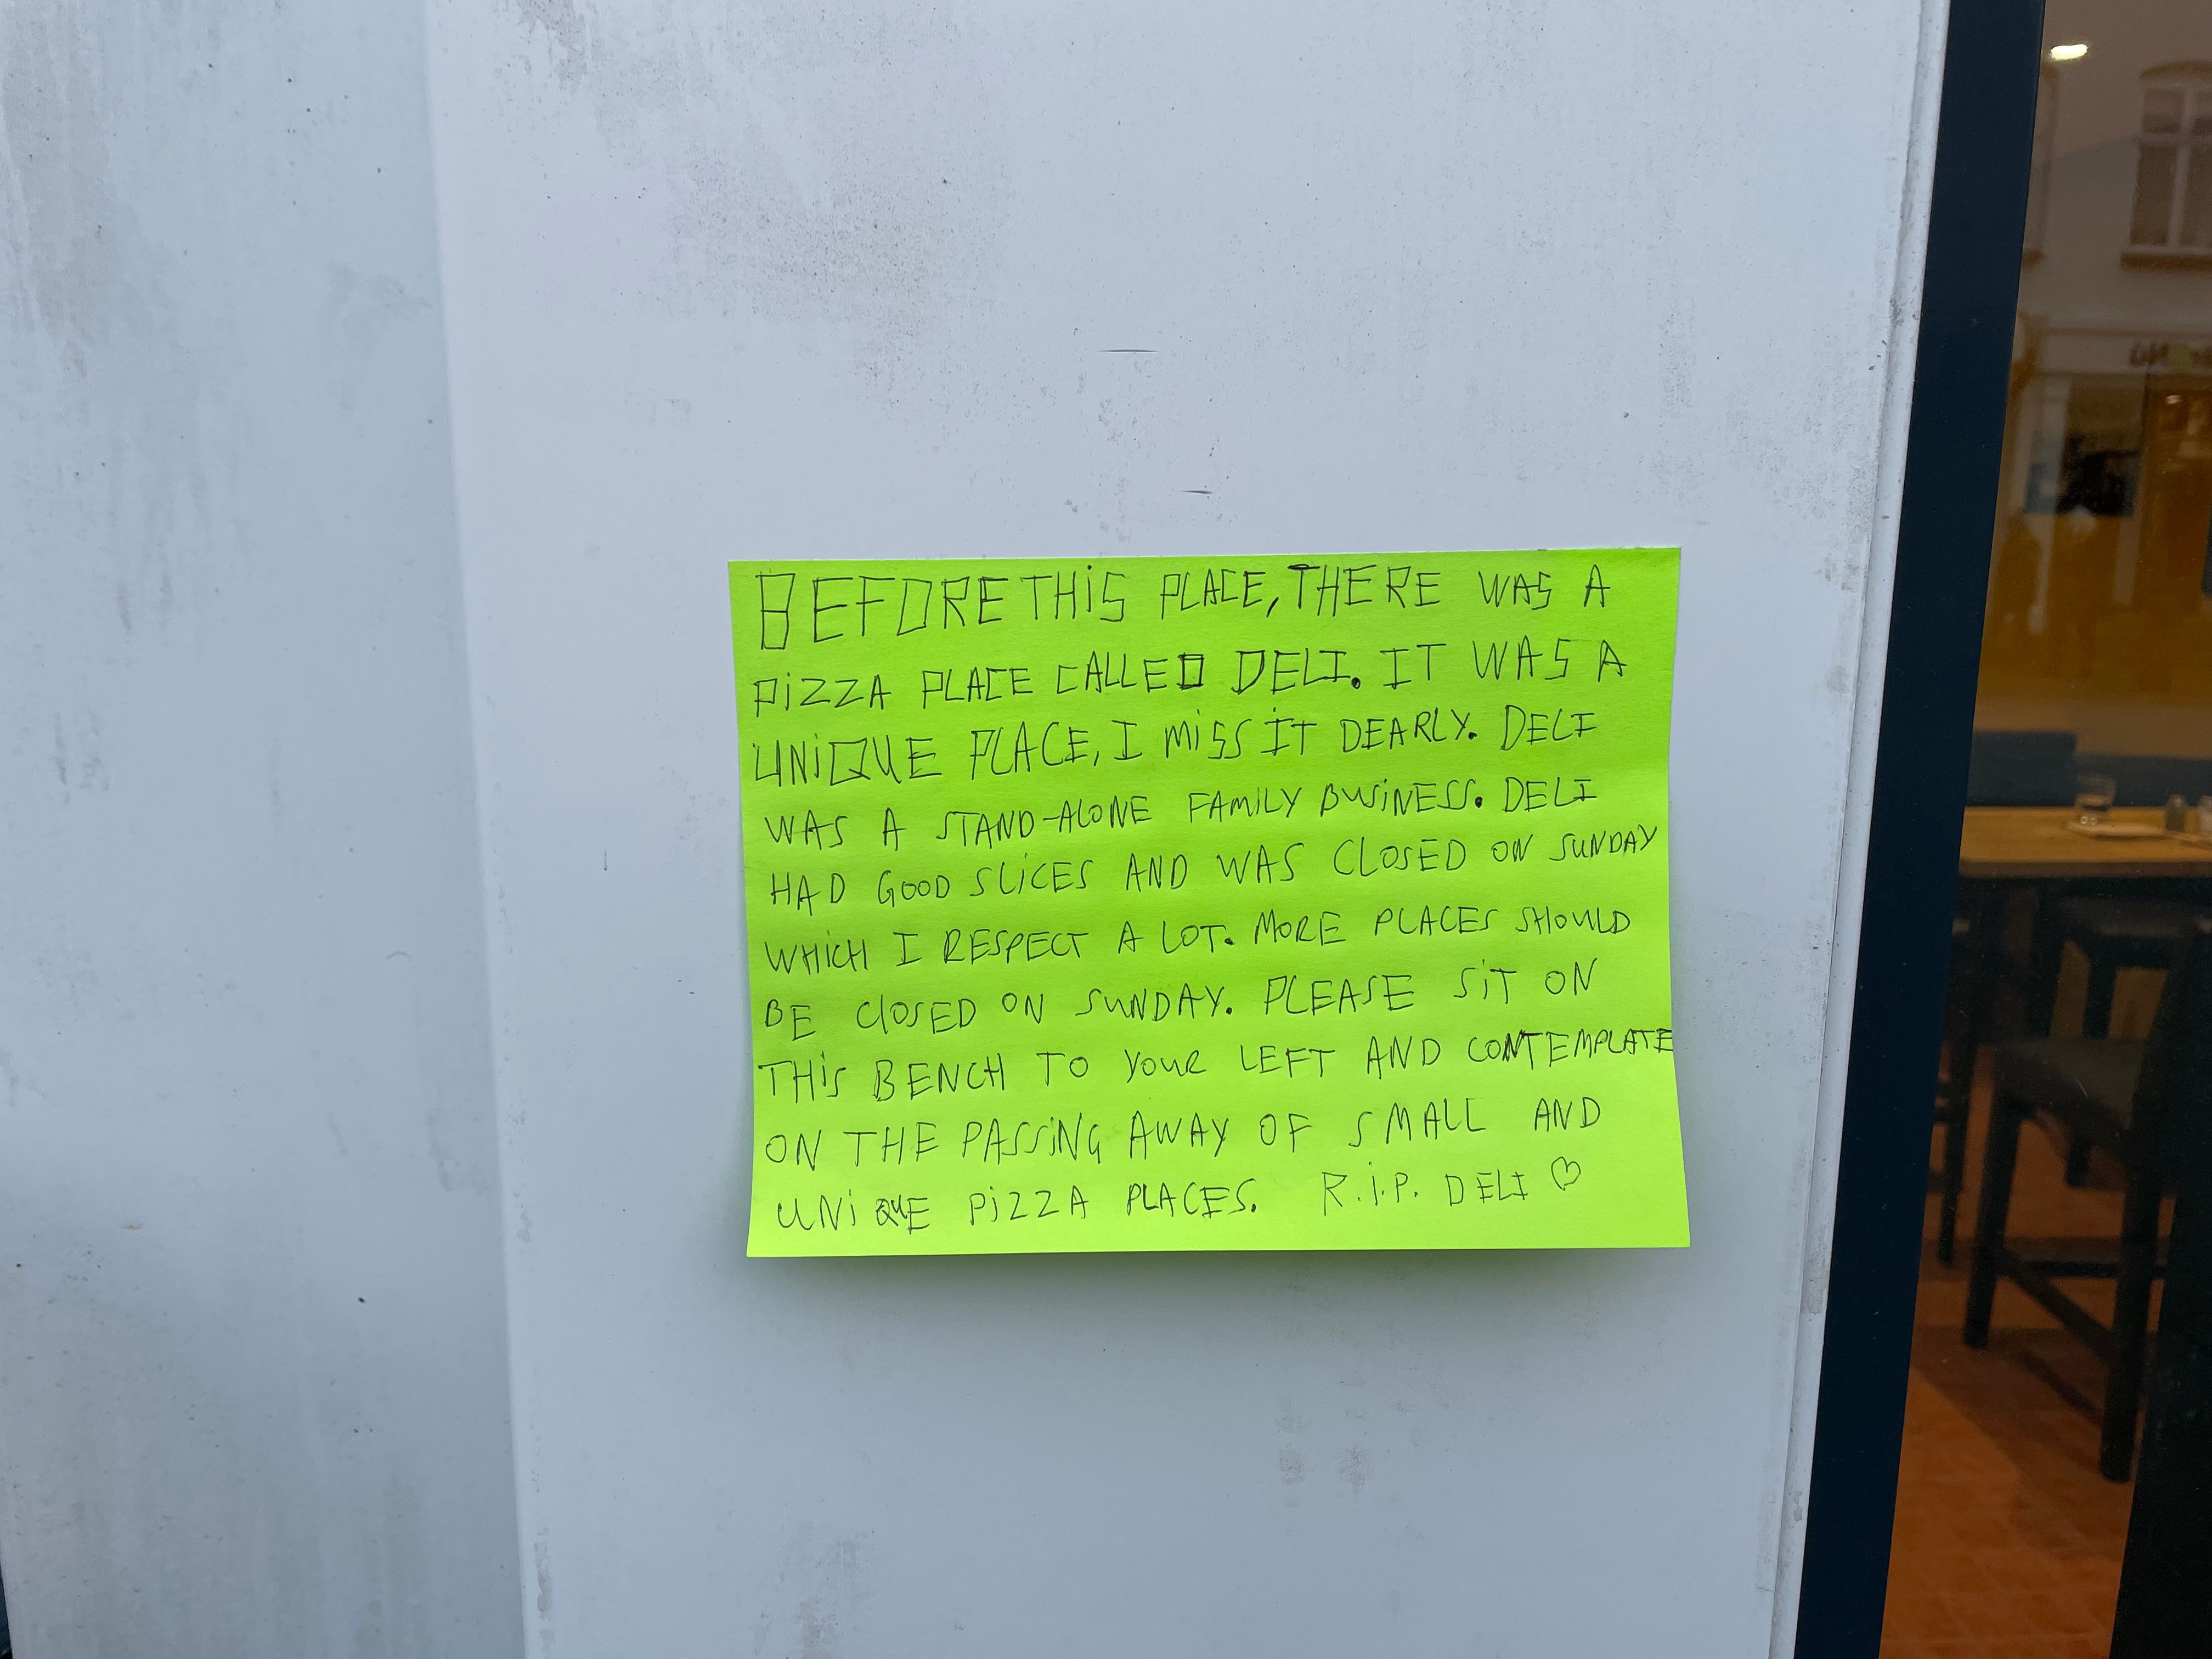 BEFORE THIS PLACE, THERE WAS A
PIZZA PLACE CALLED DELI. IT WAS A
UNIQUE PLACE, I MISS IT DEARLY. DELI
WAS A STAND-ALONE FAMILY BUSINESS. DELI
HAD GOOD SLICES AND WAS CLOSED ON SUNDAY
WHICH I RESPECT A LOT. MORE PLACES SHOULD
BE CLOSED ON SUNDAY. PLEASE SIT ON
THIS BENCH TO YOUR LEFT AND CONTEMPLATE
ON THE PASSING AWAY OF SMALL AND
UNIQUE PIZZA PLACES. R.I.P. DELI ♡